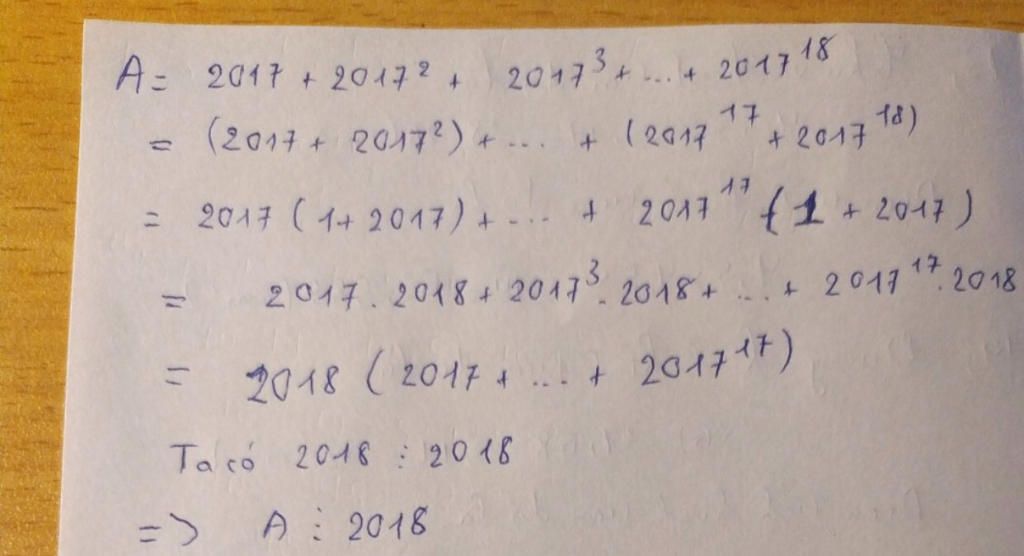 A = 2017 + 2017² + 2017³ + ... + 2017¹⁸
= (2017 + 2017²) + ... + (2017¹⁷ + 2017¹⁸)
= 2017 (1 + 2017) + ... + 2017¹⁷ (1 + 2017)
= 2017 . 2018 + 2017³ . 2018 + ... + 2017¹⁷ . 2018
= 2018 (2017 + ... + 2017¹⁷)
Ta có 2018 ⋮ 2018
=> A ⋮ 2018